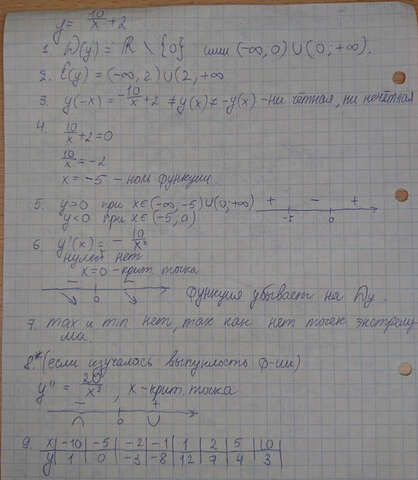 y = 10/x + 2
1. D(y) = R \ {0} или (-∞, 0) ∪ (0, +∞).
2. E(y) = (-∞, 2) ∪ (2, +∞
3. y(-x) = -10/x + 2 ≠ y(x) ≠ -y(x) - ни чётная, ни нечётная
4.
10/x + 2 = 0
10/x = -2
x = -5 - ноль функции
5. y>0 при x∈(-∞, -5) ∪ (0, +∞) + - +
y<0 при x∈(-5, 0) -5 0
6. y'(x) = - 10/x²
нулей нет
x=0 - крит. точка
- -
0 функция убывает на Dy.
7. max и min нет, так как нет точек экстрему
ма.
8.* (если изучалась выпуклость ф-ии)
y'' = 20/x³, x - крит. точка
- +
∩ 0 ∪
9. x | -10 | -5 | -2 | -1 | 1 | 2 | 5 | 10 |
y | 1 | 0 | -3 | -8 | 12 | 7 | 4 | 3 |